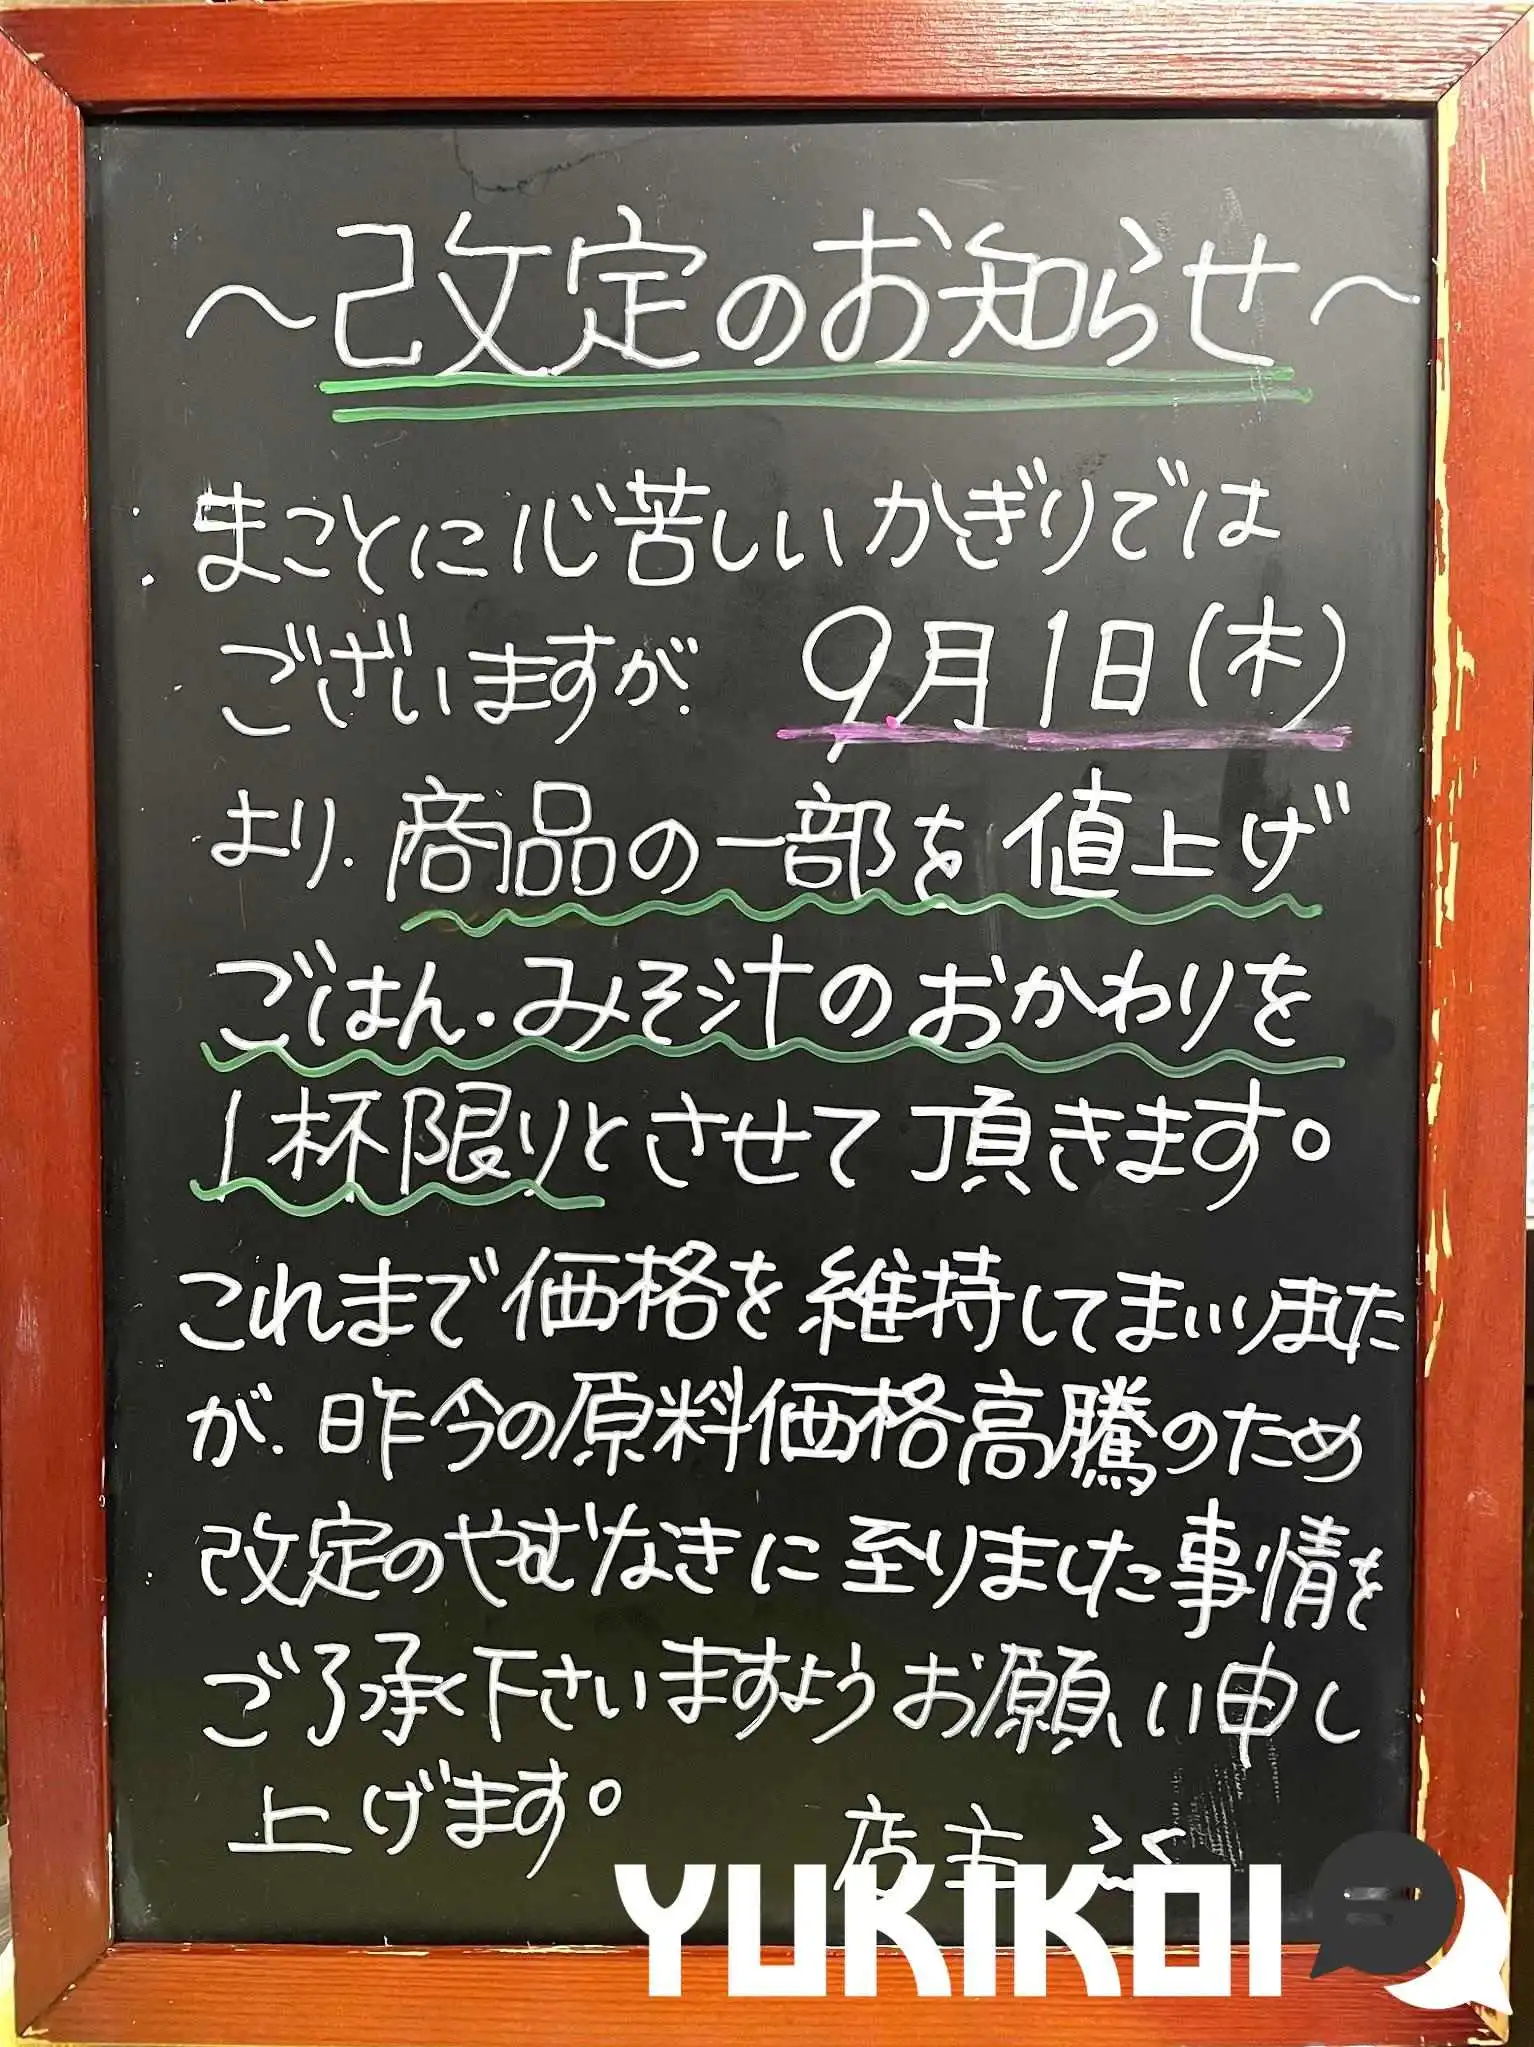 ～改定のお知らせ～
まことに心苦しいかぎりでは
ございますが、9月1日(木)
より、商品の一部を値上げ
ごはん・みそ汁のおかわりを
1杯限りとさせて頂きます。
これまで価格を維持してまいりました
が、昨今の原料価格高騰のため
改定のやむなきに至りました事情を
ご了承下さいますようお願い申し
上げます。
店主
YUKIKOI